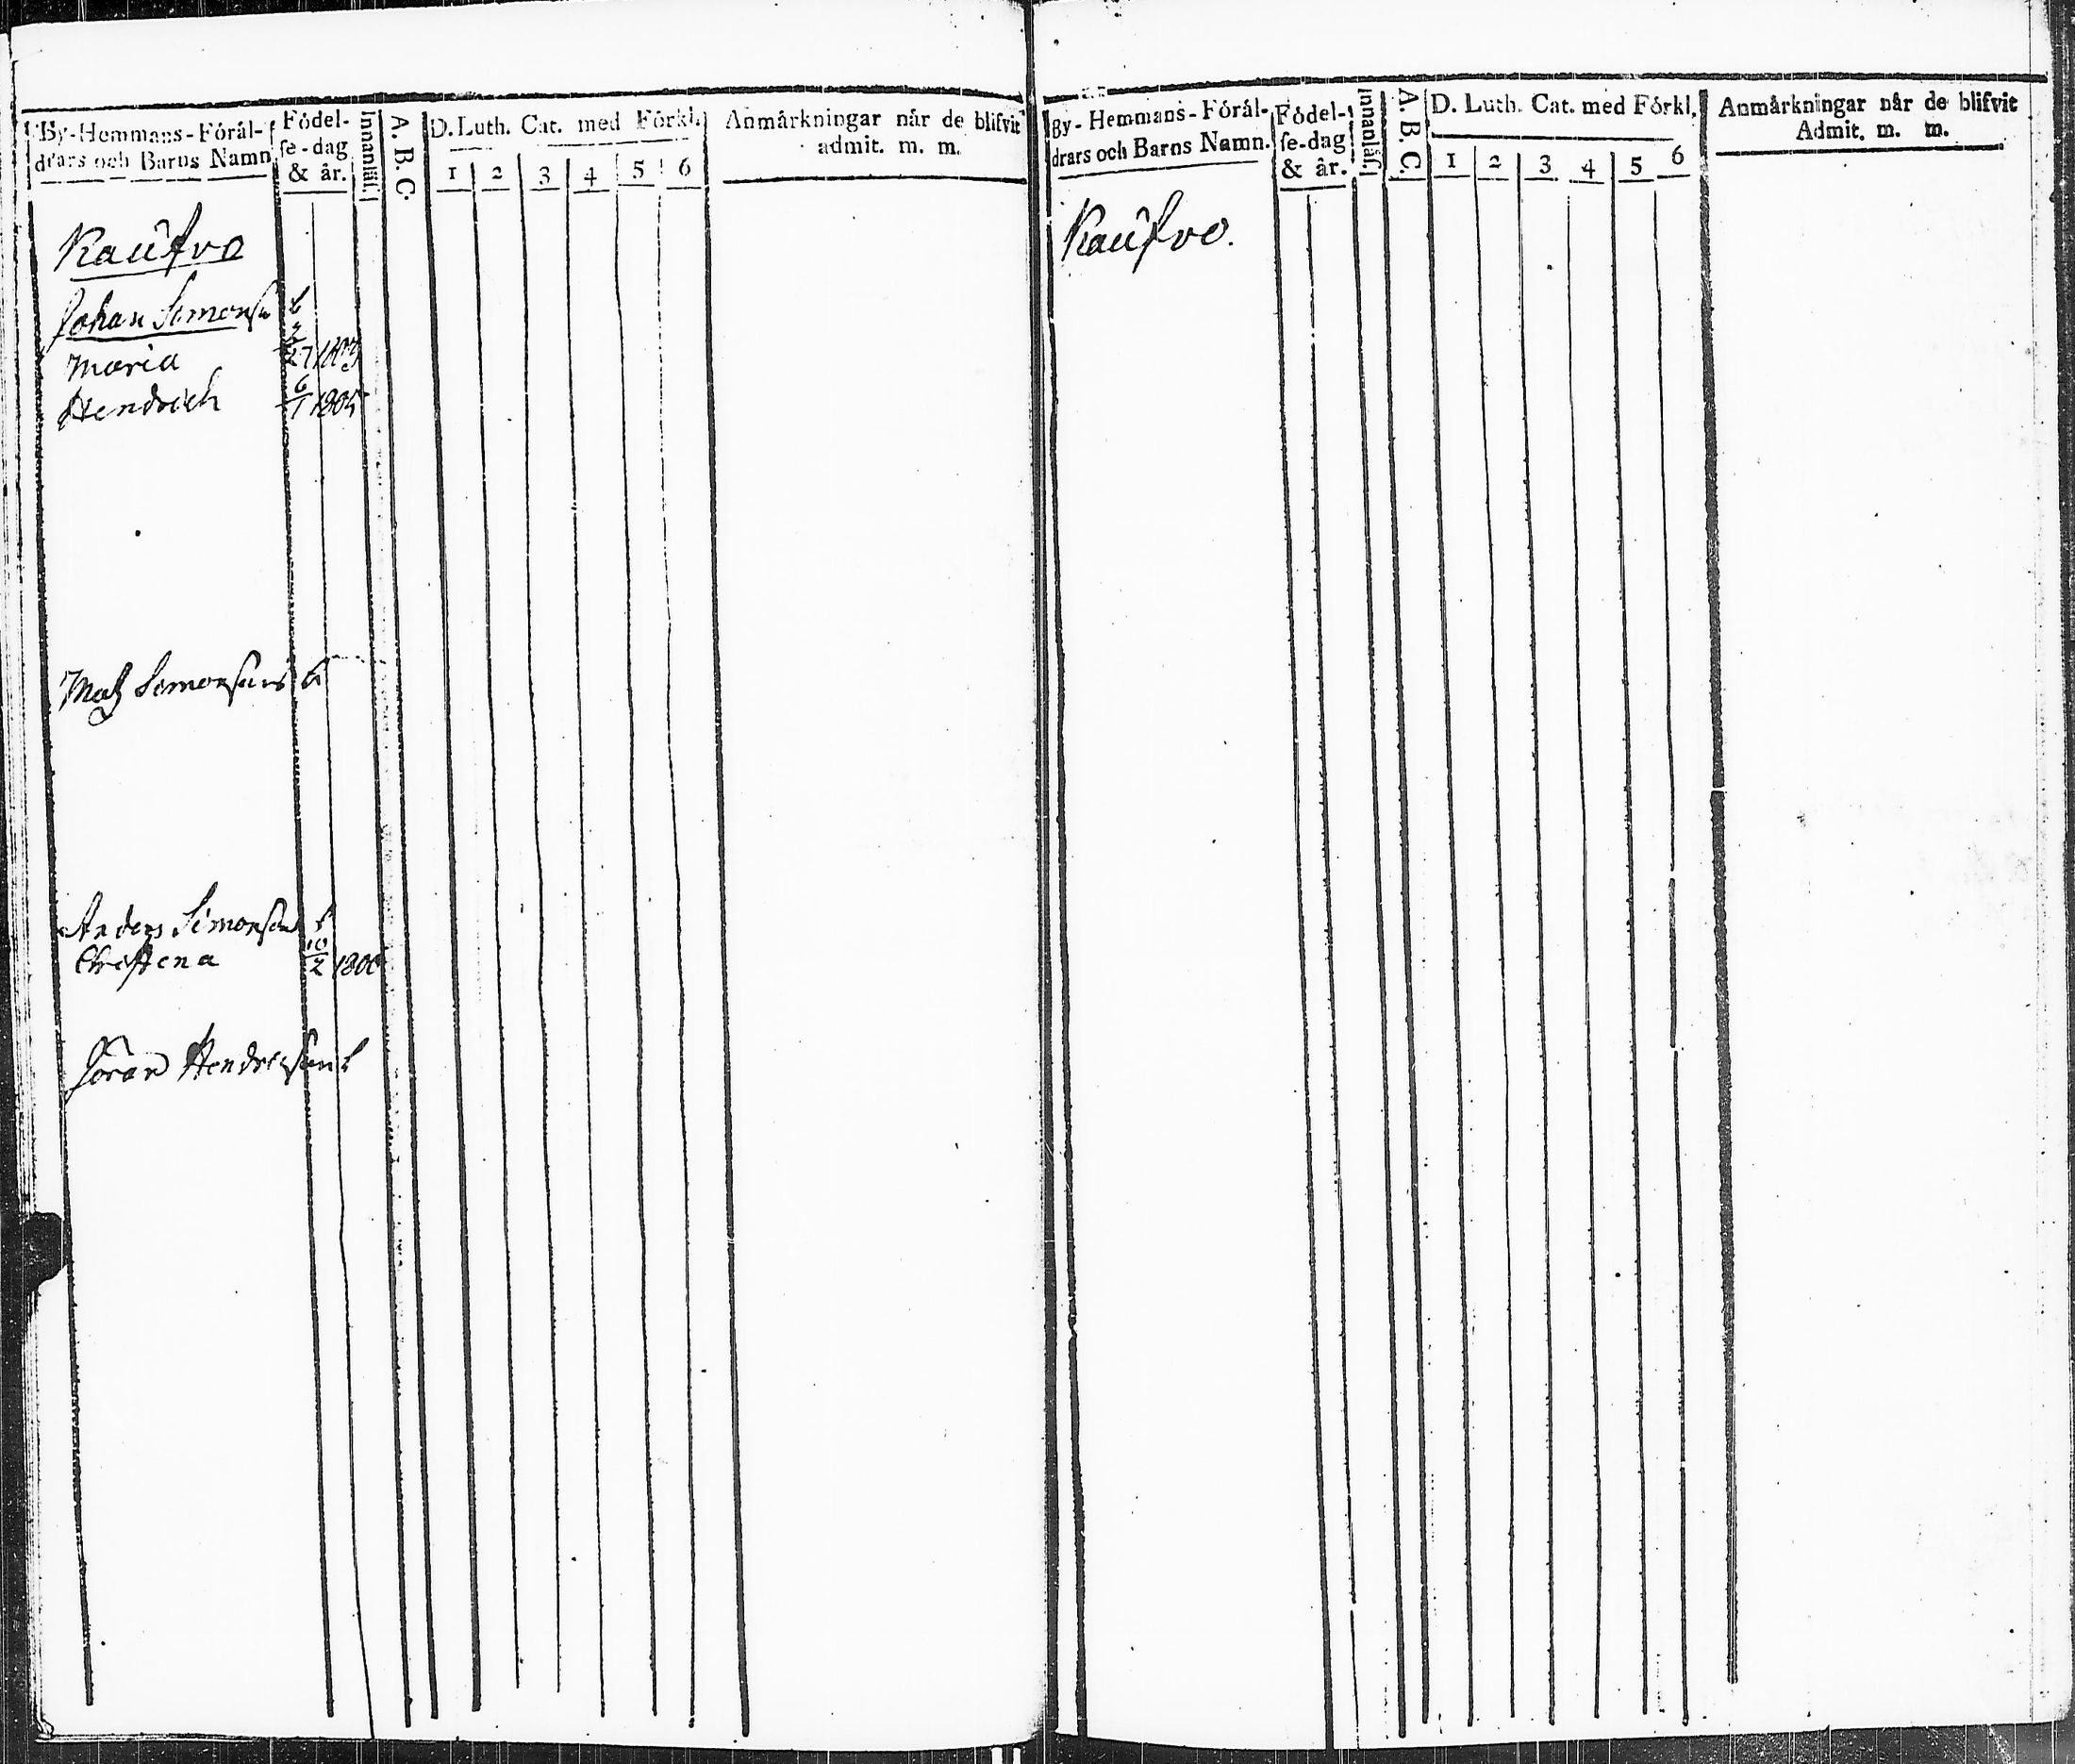 By-Hemmans-Förål-
drars och Barns Namn
Födel-
se-dag
& år.
Innanläs.
A. B. C.
D. Luth. Cat. med Förkl.
1 2 3 4 5 6
Anmårkningar når de blifvit
admit. m. m.
Johan Simons
Maria 27 1803
Hendrich 6/1 1805
Matz Simonsons b
Anders Simonsons b
Christena 10/2 1800
Jöran Hendricsons b
By-Hemmans-Förål-
drars och Barns Namn.
Födel-
se-dag
& år.
Innanläs.
A. B. C.
D. Luth. Cat. med Förkl.
1 2 3 4 5 6
Anmårkningar når de blifvit
Admit. m. m.